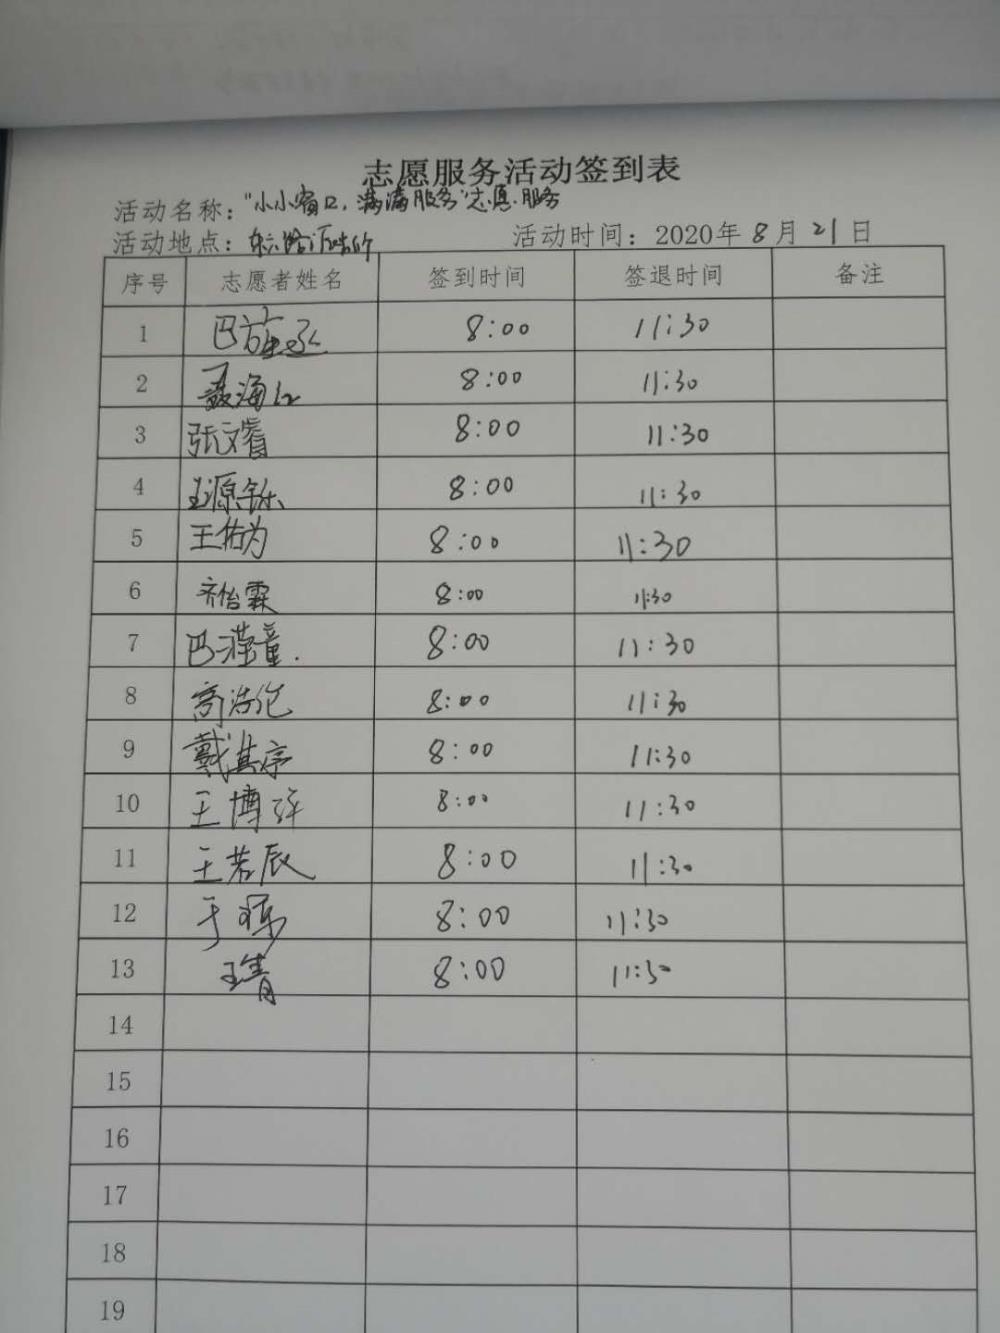 志愿服务活动签到表
活动名称："小小窗口，满满服务"志愿服务
活动地点：
活动时间：2020年8月21日
序号 志愿者姓名 签到时间 签退时间 备注
1 8:00 11:30
2 聂海红 8:00 11:30
3 张文睿 8:00 11:30
4 王源铄 8:00 11:30
5 王佑为 8:00 11:30
6 齐怡霖 8:00 11:30
7 巴瑾童. 8:00 11:30
8 高浩伦 8:00 11:30
9 戴淇序 8:00 11:30
10 王博 8:00 11:30
11 王若辰 8:00 11:30
12 于 8:00 11:30
13 王青 8:00 11:30
14
15
16
17
18
19